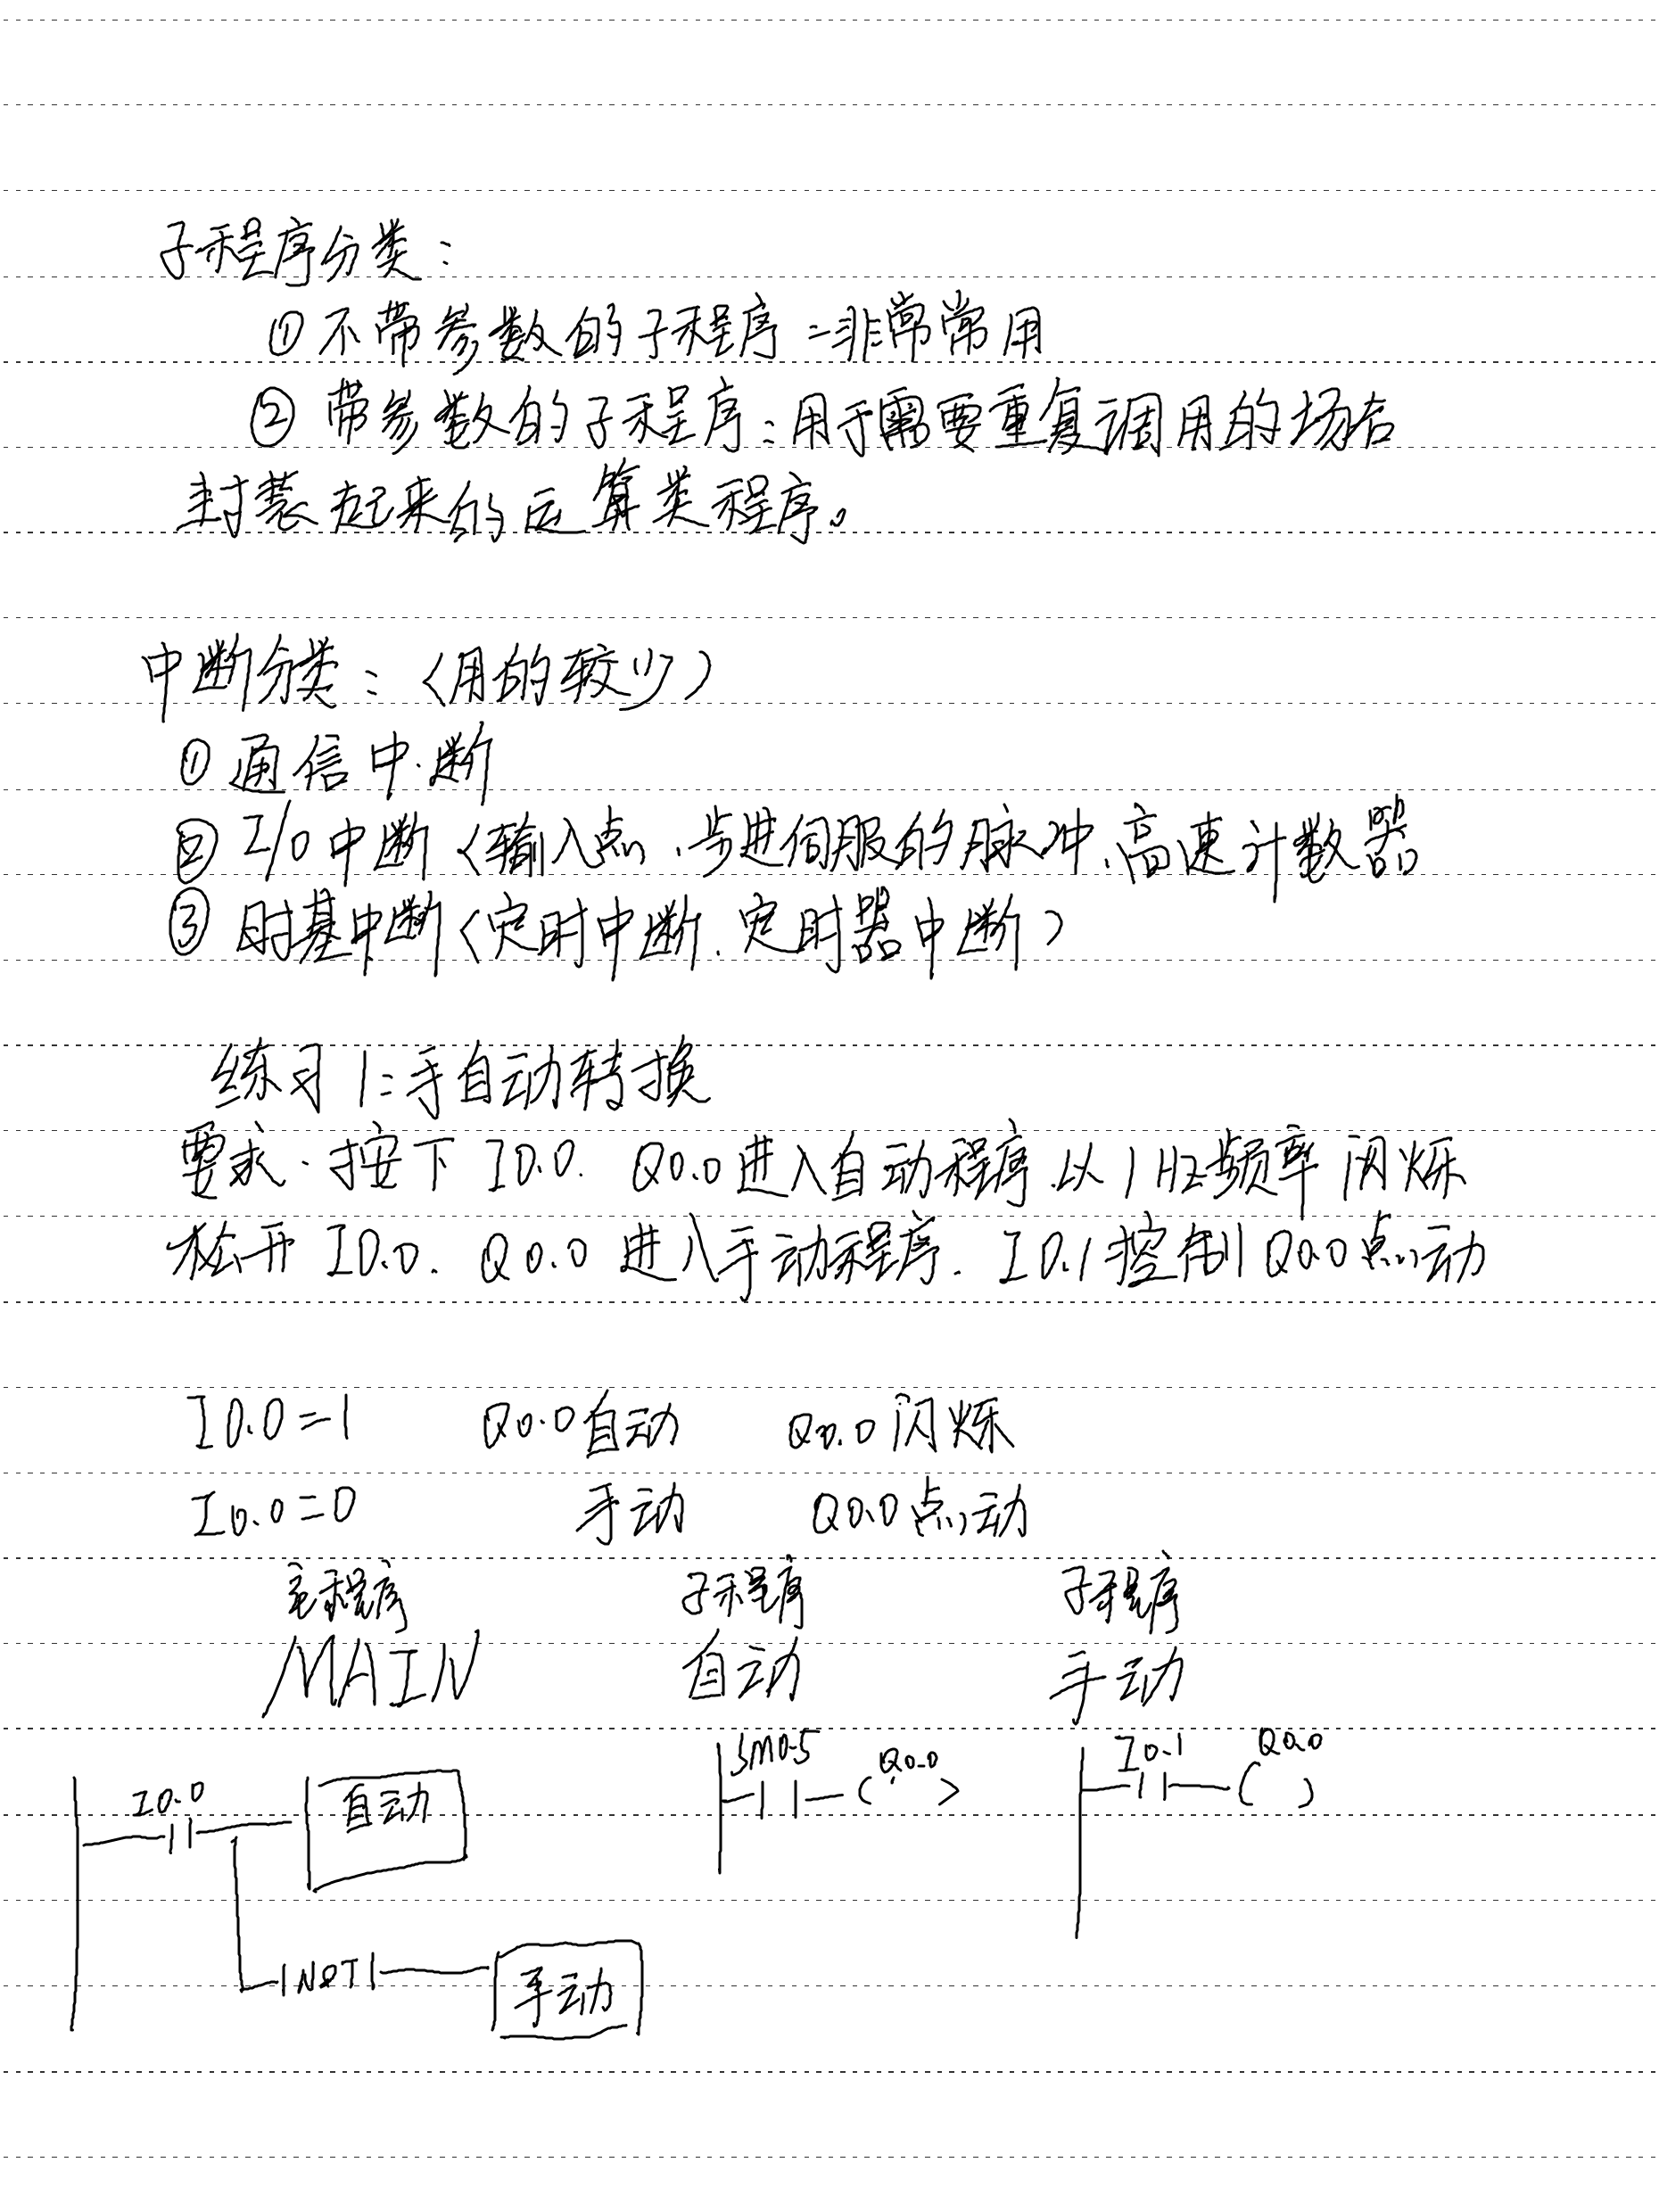 子程序分类:
① 不带参数的子程序:非常常用
② 带参数的子程序:用于需要重复调用的场合
封装起来的运算类程序。
中断分类:(用的较少)
① 通信中断
② I/O中断(输入点、步进伺服的脉冲、高速计数器
③ 时基中断(定时中断.定时器中断)
练习1:手自动转换
要求.按下I0.0. Q0.0进入自动程序.以1Hz频率闪烁
松开I0.0. Q0.0进入手动程序. I0.1控制Q0.0点动
I0.0=1 Q0.0自动 Q0.0闪烁
I0.0=0 手动 Q0.0点动
主程序 子程序 子程序
MAIN 自动 手动
SM0.5 Q0.0 I0.1 Q0.0
I0.0 自动
NOT 手动